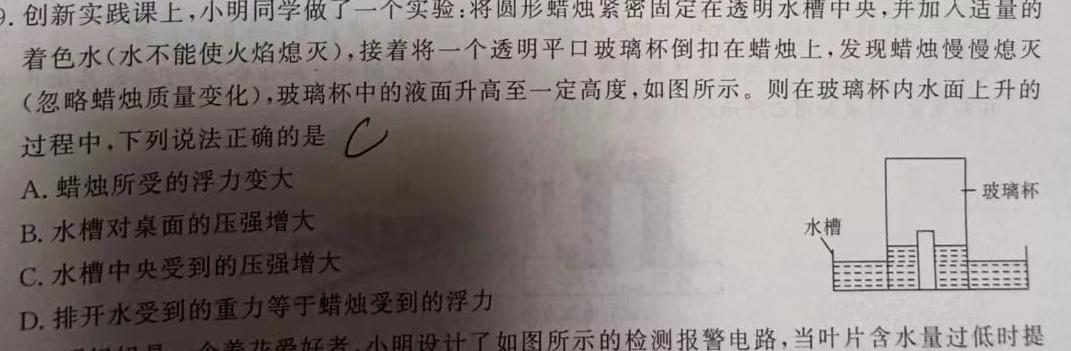 9. 创新实践课上，小明同学做了一个实验：将圆形蜡烛紧密固定在透明水槽中央，并加入适量的
着色水（水不能使火焰熄灭），接着将一个透明平口玻璃杯倒扣在蜡烛上，发现蜡烛慢慢熄灭
（忽略蜡烛质量变化），玻璃杯中的液面升高至一定高度，如图所示。则在玻璃杯内水面上升的
过程中，下列说法正确的是 C
A. 蜡烛所受的浮力变大
B. 水槽对桌面的压强增大
C. 水槽中央受到的压强增大
D. 排开水受到的重力等于蜡烛受到的浮力
玻璃杯
水槽
一个养花爱好者，小明设计了如图所示的检测报警电路，当叶片含水量过低时提